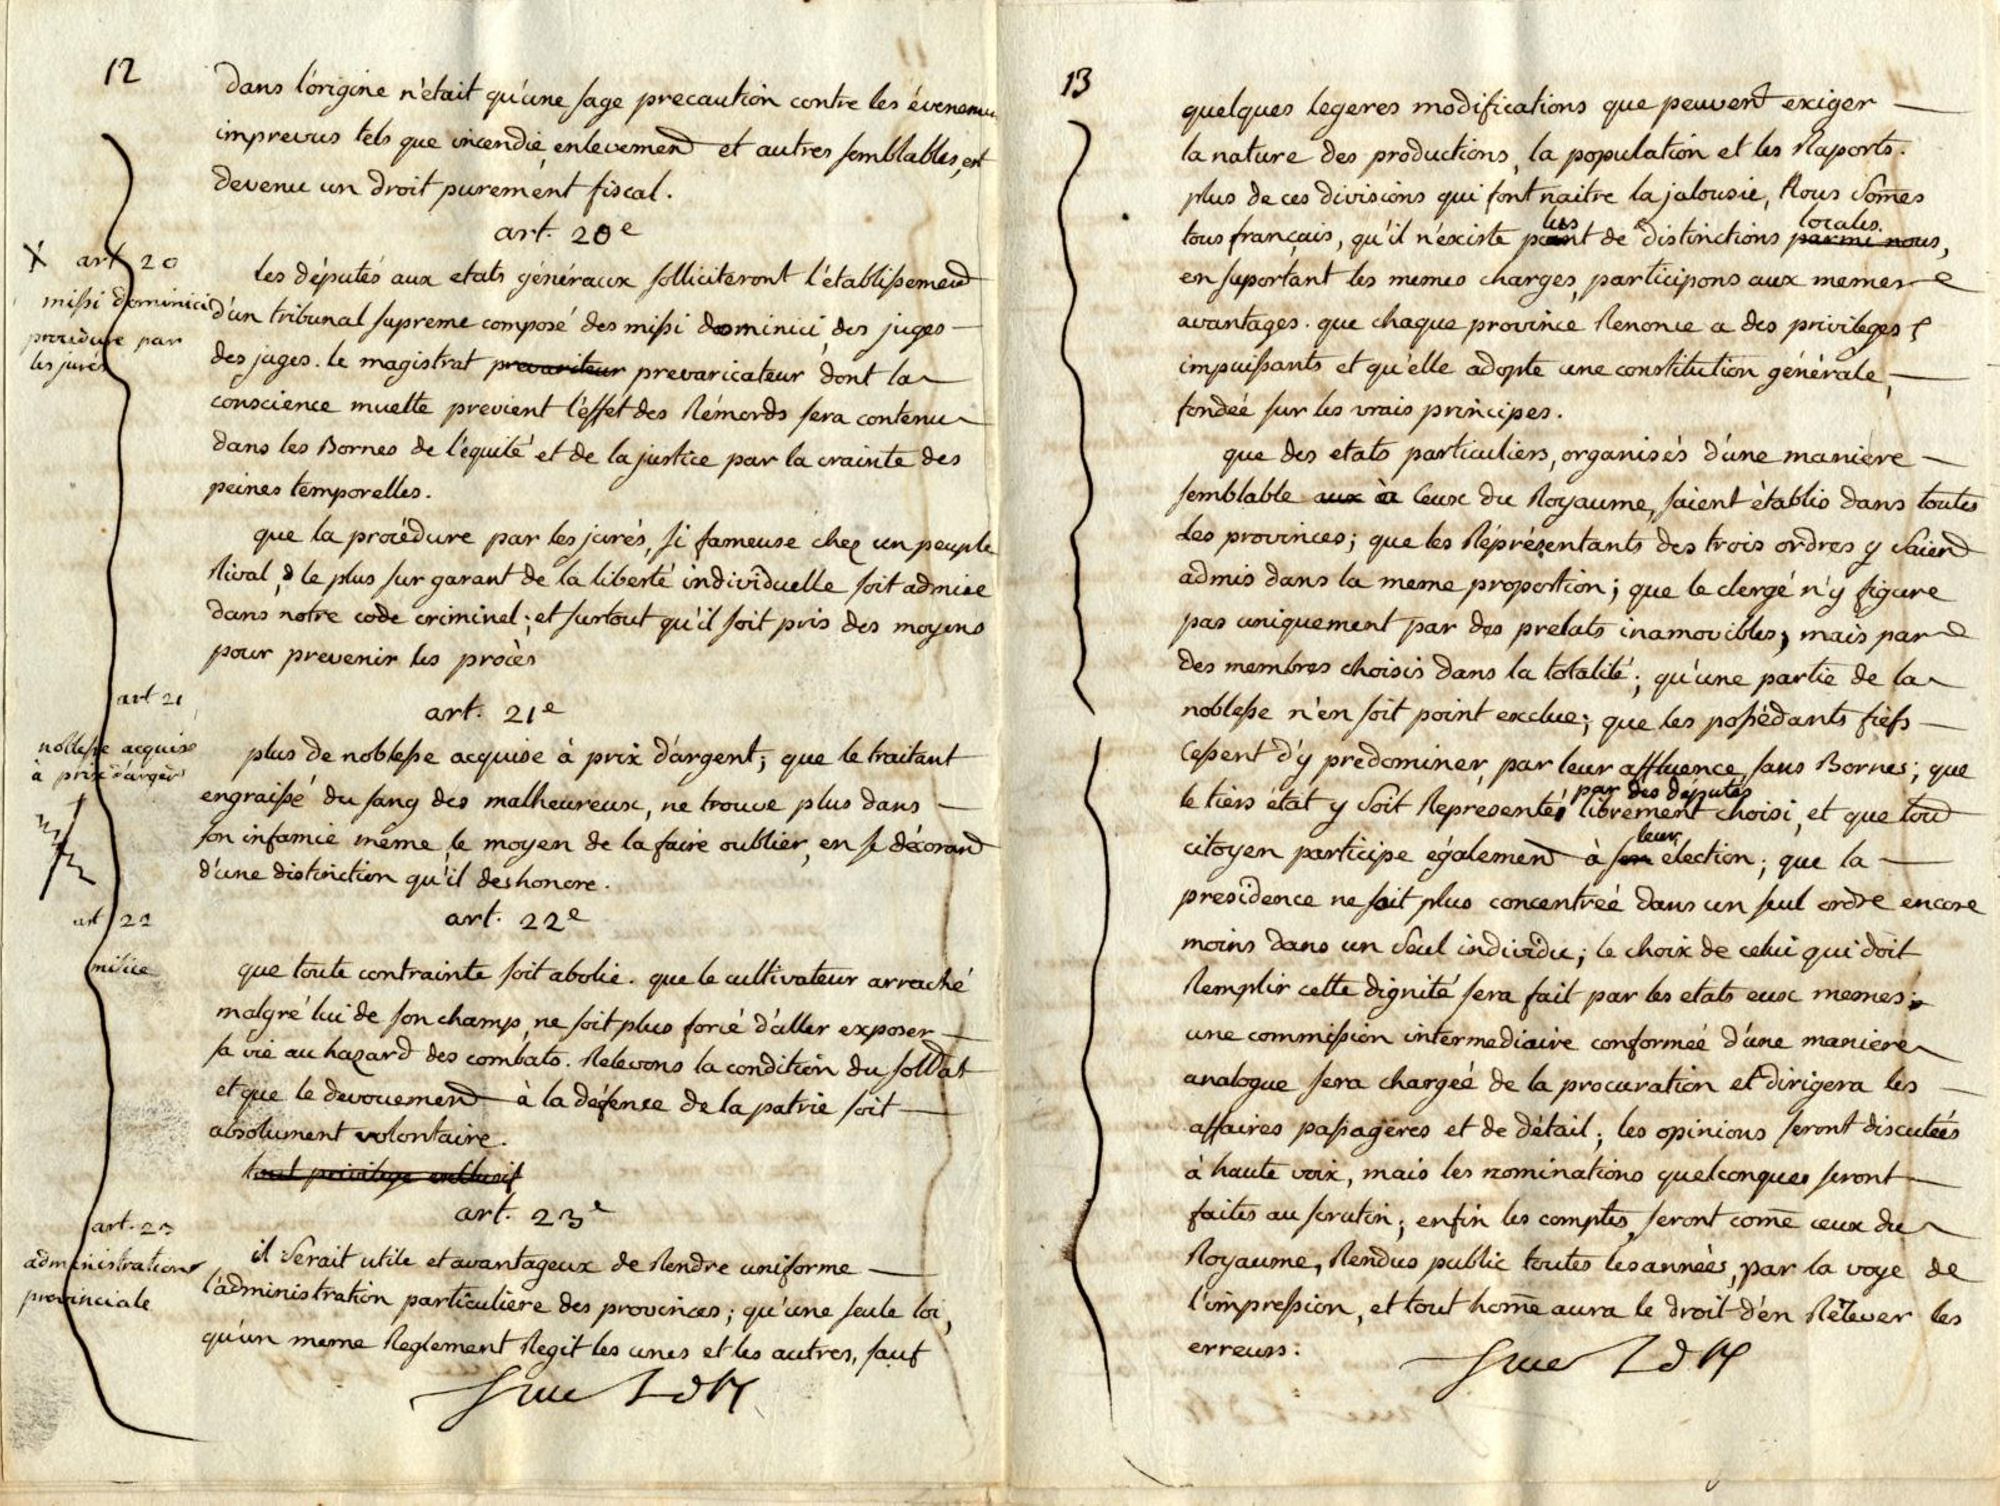 12
dans l'origine n'était qu'une sage precaution contre les évenemen
imprevus tels que incendie, enlevement et autres semblables, est
devenu un droit purement fiscal.
art. 20e
X art 20
missi dominici
procedure par
les jurés
les députés aux etats généraux solliciteront l'établissement
d'un tribunal supreme composé des missi dominici, des juges
des juges. le magistrat prevariteur prevaricateur dont la
conscience muette previent l'effet des Rémords sera contenu
dans les Bornes de l'équité et de la justice par la crainte des
peines temporelles.
que la procédure par les jurés, si fameuse chez un peuple
Rival, & le plus sur garant de la liberté individuelle soit admise
dans notre code criminel; et surtout qu'il soit pris des moyens
pour prevenir les procès
art 21
noblesse acquise
à prix d'argent
art. 21e
plus de noblesse acquise à prix d'argent; que le traitant
engraissé du sang des malheureux, ne trouve plus dans
son infamie même, le moyen de la faire oublier, en se décorant
d'une distinction qu'il deshonore.
art 22
milice
art. 22e
que toute contrainte soit abolie. que le cultivateur arraché
malgré lui de son champ, ne soit plus forcé d'aller exposer
sa vie au hazard des combats. Relevons la condition du soldat
et que le devouement à la défense de la patrie soit
absolument volontaire.
tout privilege exclusif
art. 23
administration
provinciale
art. 23e
il serait utile et avantageux de Rendre uniforme
l'administration particuliere des provinces; qu'une seule loi,
qu'un meme Reglement Regit les unes et les autres, sauf
13
quelques legeres modifications que peuvent exiger
la nature des productions, la population et les Raports.
plus de ces divisions qui font naitre la jalousie, Nous somes
tous français, qu'il n'existe point de les distinctions parmi nous, locales.
en suportant les memes charges, participons aux memes
avantages. que chaque province Renonce a des privileges
impuissants et qu'elle adopte une constitution générale,
fondée sur les vrais principes.
que des etats particuliers, organisés d'une maniere
semblable aux à Ceux du Royaume, soient établis dans toutes
les provinces; que les Représentants des trois ordres y soient
admis dans la meme proportion; que le clergé n'y figure
pas uniquement par des prelats inamovibles, mais par
des membres choisis dans la totalité; qu'une partie de la
noblesse n'en soit point exclue; que les possédants fiefs
Cessent d'y predominer, par leur affluence sans Bornes; que
le tiers état y soit Représenté par des députés librement choisi, et que tout
citoyen participe également à son leur election; que la
presidence ne soit plus concentrée dans un seul ordre encore
moins dans un seul individu; le choix de celui qui doit
Remplir cette dignité sera fait par les etats eux memes;
une commission intermediaire conformée d'une maniere
analogue sera chargée de la procuration et dirigera les
affaires passagères et de détail; les opinions seront discutées
à haute voix, mais les nominations quelconques seront
faites au scrutin; enfin les comptes, seront come ceux du
Royaume, Rendus public toutes les années, par la voye de
l'impression, et tout home aura le droit d'en Relever les
erreurs.